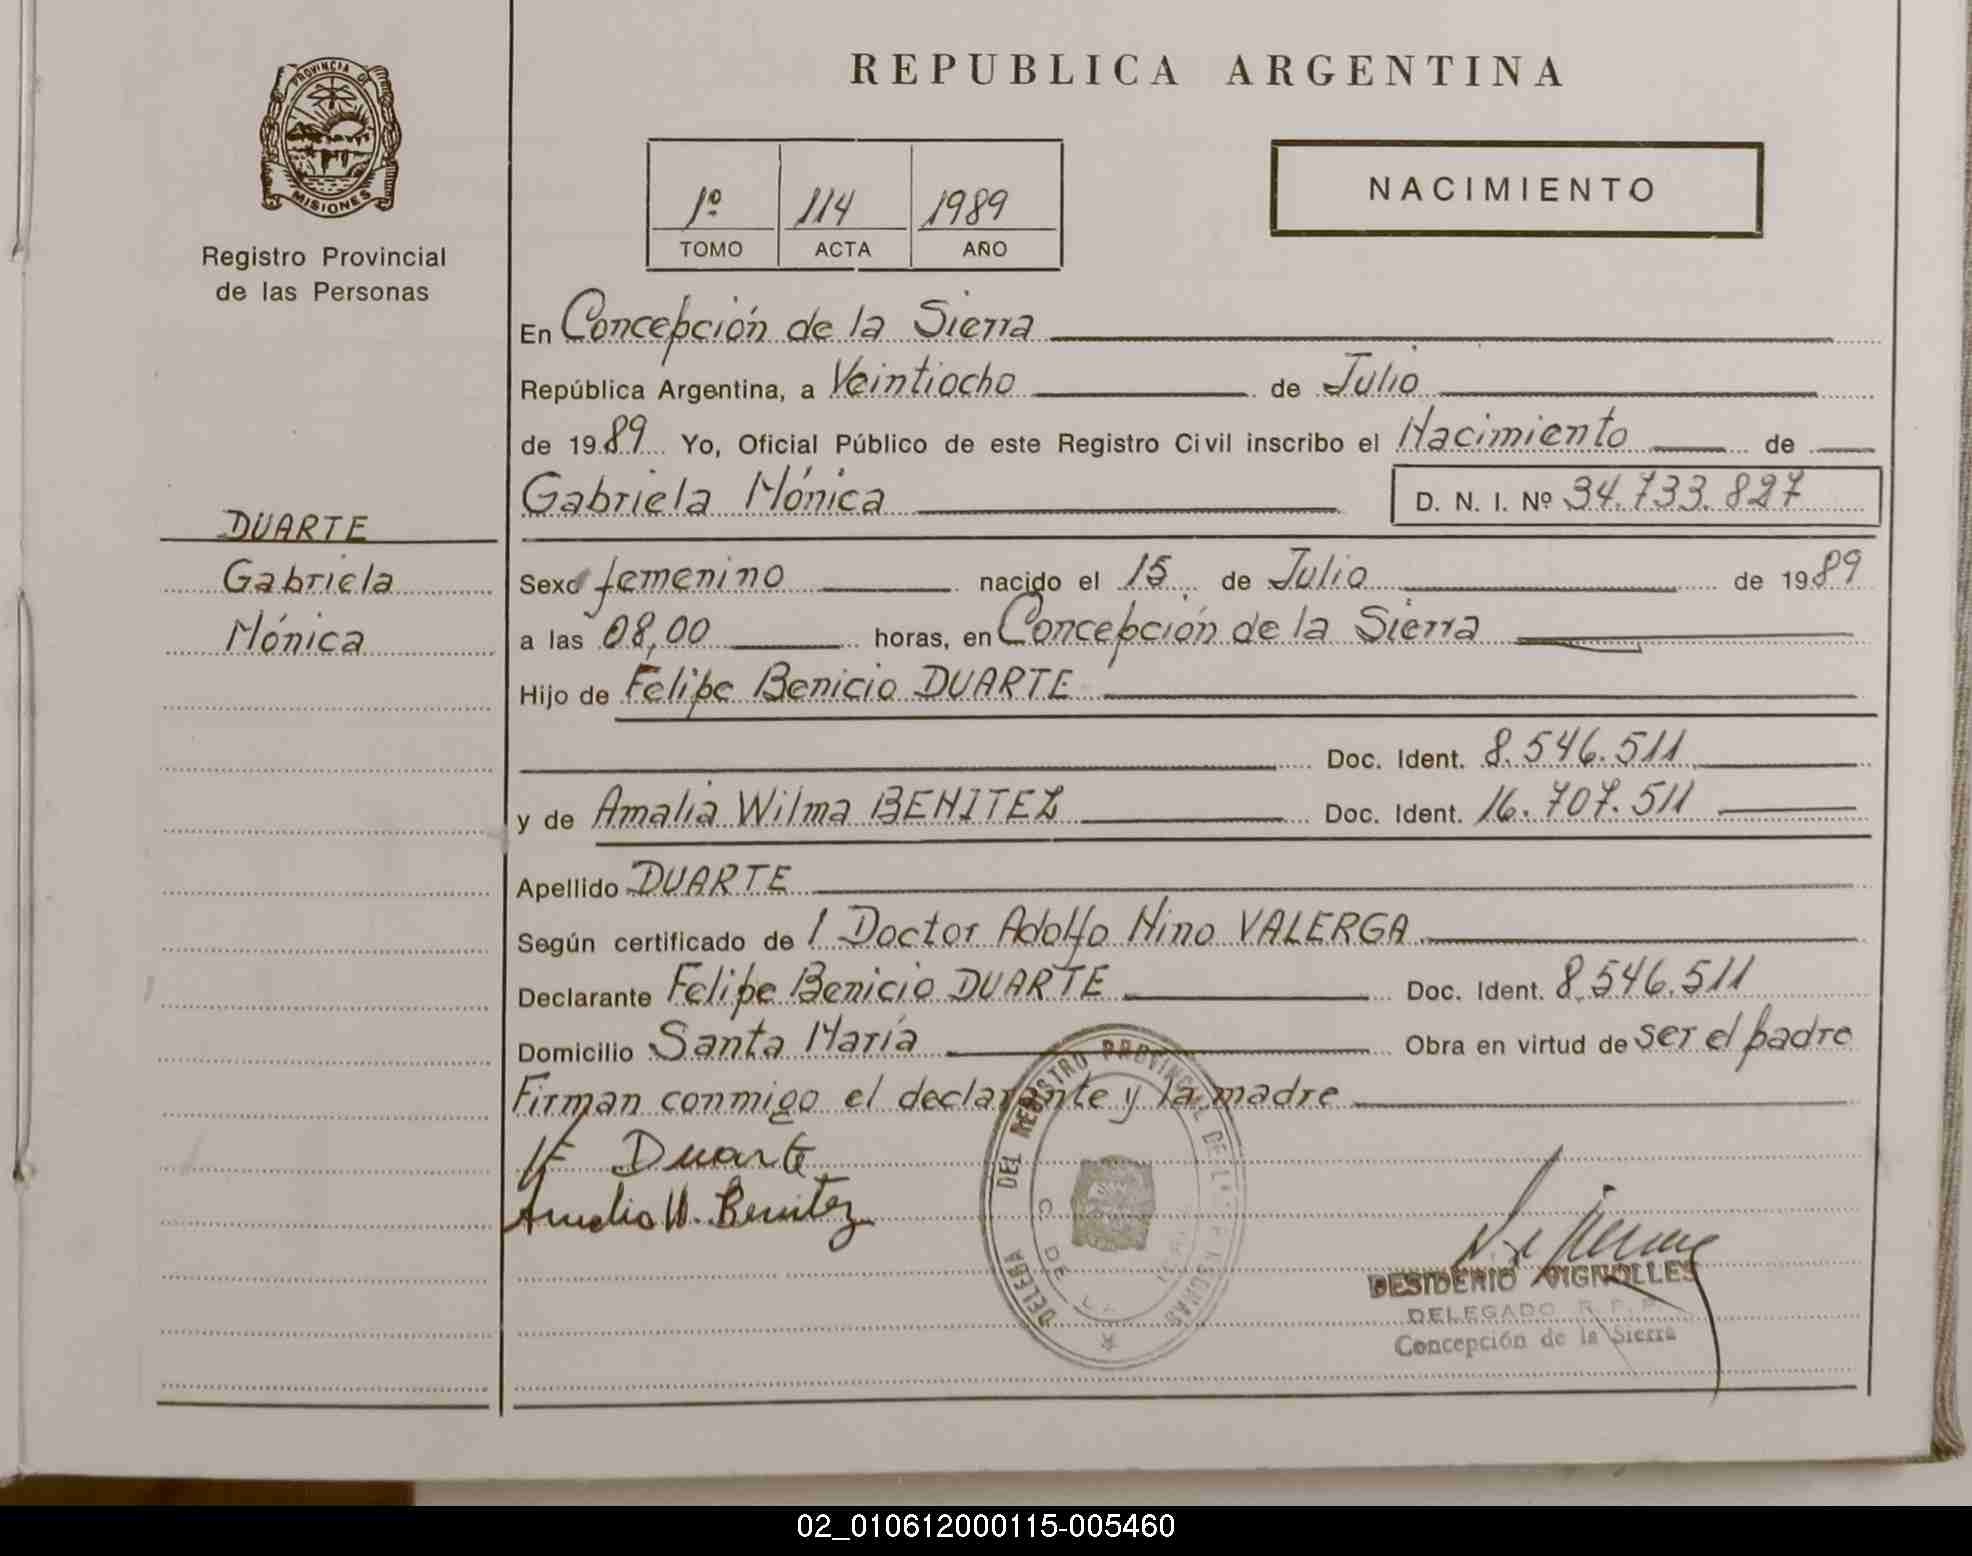 REPUBLICA ARGENTINA
PROVINCIA DE
MISIONES
Registro Provincial
de las Personas
1º 114 1989
TOMO ACTA AÑO
NACIMIENTO
En Concepción de la Sierra
República Argentina, a Veintiocho de Julio
de 1989 Yo, Oficial Público de este Registro Civil inscribo el Nacimiento de
Gabriela Mónica D. N. I. Nº 34.733.827
DUARTE
Gabriela
Mónica
Sexo femenino nacido el 15 de Julio de 1989
a las 08,00 horas, en Concepción de la Sierra
Hijo de Felipe Benicio DUARTE
Doc. Ident. 8.546.511
y de Amalia Wilma BENITEZ Doc. Ident. 16.707.511
Apellido DUARTE
Según certificado de l Doctor Adolfo Nino VALERGA
Declarante Felipe Benicio DUARTE Doc. Ident. 8.546.511
Domicilio Santa María Obra en virtud de ser el padre
Firman conmigo el declarante y la madre
Duarte
Amalia W. Benitez
DEL REGISTRO PROVINCIAL DE
DESIDERIO VIGNOLLES
DELEGADO R. P. P.
Concepción de la Sierra
02_010612000115-005460